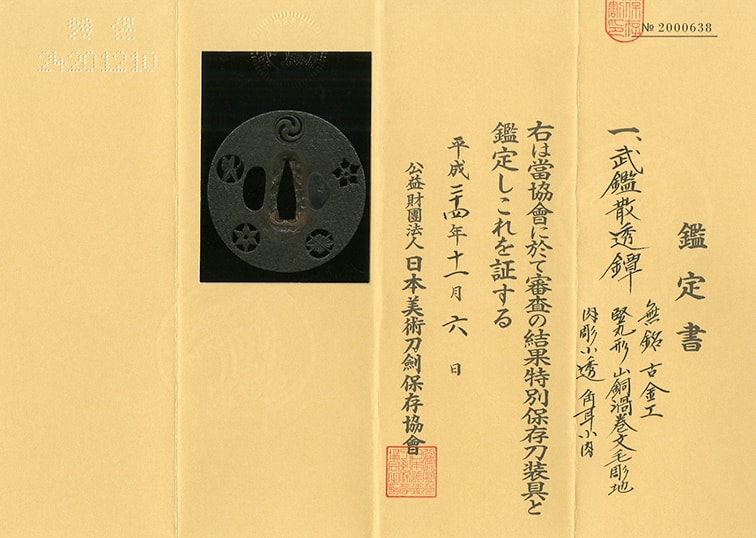 № 2000638
保存
割印
鑑定書
一、武鑑散透鐔
無銘 古金工
竪丸形 山銅渦巻文毛彫地
肉彫小透 角耳小肉
右は當協會に於て審査の結果特別保存刀装具と
鑑定しこれを証する
平成二十四年十一月六日
公益財團法人 日本美術刀劍保存協會
24201210